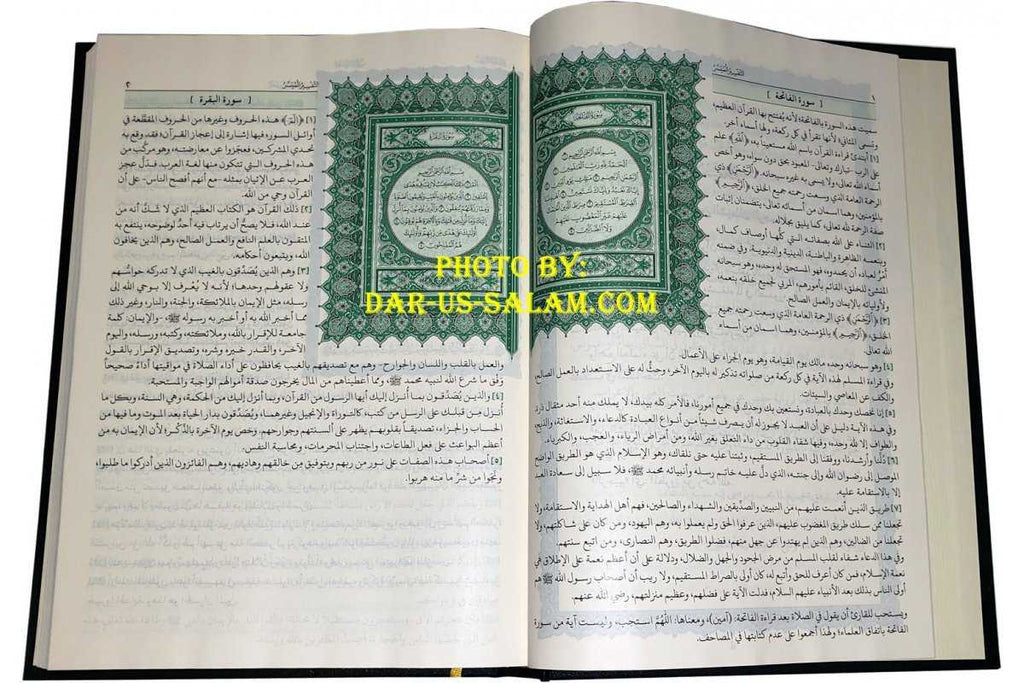 التفسير الميسر
١
[ سورة الفاتحة ]
سميت هذه السورة بالفاتحة؛ لأنه يفتتح بها القرآن العظيم،
وتسمى المثاني؛ لأنها تقرأ في كل ركعة، ولها أسماء أخر.
[١] أبتدئ قراءة القرآن باسم الله مستعينا به، ﴿اللهِ﴾ علم
على الرب -تبارك وتعالى- المعبود بحق دون سواه، وهو أخص
أسماء الله تعالى، ولا يسمى به غيره سبحانه. ﴿الرَّحْمَنِ﴾ ذي
الرحمة العامة الذي وسعت رحمته جميع الخلق، ﴿الرَّحِيمِ﴾
بالمؤمنين، وهما اسمان من أسمائه تعالى، يتضمنان إثبات
صفة الرحمة لله تعالى كما يليق بجلاله.
[٢] الثناء على الله بصفاته التي كلُّها أوصاف كمال،
وبنعمه الظاهرة والباطنة، الدينية والدنيوية، وفي ضمنه
أمرٌ لعباده أن يحمدوه، فهو المستحق له وحده، وهو سبحانه
المنشئ للخلق، القائم بأمورهم، المربي لجميع خلقه بنعمه،
ولأوليائه بالإيمان والعمل الصالح.
[٣] ﴿الرَّحْمَنِ﴾ ذي الرحمة العامة الذي وسعت رحمته جميع
الخلق، ﴿الرَّحِيمِ﴾ بالمؤمنين، وهما اسمان من أسماء
الله تعالى.
[٤] وهو سبحانه وحده مالك يوم القيامة، وهو يوم الجزاء على الأعمال.
وفي قراءة المسلم لهذه الآية في كل ركعة من صلواته تذكير له باليوم الآخر، وحثٌّ له على الاستعداد بالعمل الصالح،
والكف عن المعاصي والسيئات.
[٥] إنا نخصك وحدك بالعبادة، ونستعين بك وحدك في جميع أمورنا، فالأمر كله بيدك، لا يملك منه أحد مثقال ذرة.
وفي هذه الآية دليل على أن العبد لا يجوز له أن يصرف شيئاً من أنواع العبادة كالدعاء، والاستغاثة، والذبح،
والطواف إلا لله وحده، وفيها شفاء القلوب من داء التعلق بغير الله، ومن أمراض الرياء، والعجب، والكبرياء.
[٦] دُلَّنا وأرشدنا، ووفقنا إلى الطريق المستقيم، وثبتنا عليه حتى نلقاك، وهو الإسلام الذي هو الطريق الواضح
الموصل إلى رضوان الله وإلى جنته، الذي دلَّ عليه خاتم رسله وأنبيائه محمد ﷺ، فلا سبيل إلى سعادة العبد
إلا بالاستقامة عليه.
[٧] طريق الذين أنعمت عليهم، من النبيين والصديقين والشهداء والصالحين، فهم أهل الهداية والاستقامة، ولا
تجعلنا ممن سلك طريق المغضوب عليهم، الذين عرفوا الحق ولم يعملوا به، وهم اليهود، ومن كان على شاكلتهم، ولا
تجعلنا من الضالين، وهم الذين لم يهتدوا عن جهل منهم، فضلوا الطريق، وهم النصارى، ومن اتبع سنتهم.
وفي هذا الدعاء شفاء لقلب المسلم من مرض الجحود والجهل والضلال، ودلالة على أن أعظم نعمة على الإطلاق هي
نعمة الإسلام، فمن كان أعرف للحق وأتبع له، كان أولى بالصراط المستقيم، ولا ريب أن أصحاب رسول الله ﷺ هم
أولى الناس بذلك بعد الأنبياء عليهم السلام، فدلت الآية على فضلهم، وعظيم منزلتهم، رضي الله عنهم.
ويستحب للقارئ أن يقول في الصلاة بعد قراءة الفاتحة: (آمين)، ومعناها: اللَّهُمَّ استجب، وليست آية من سورة
الفاتحة باتفاق العلماء؛ ولهذا أجمعوا على عدم كتابتها في المصاحف.
التفسير الميسر
٢
[ سورة البقرة ]
[١] ﴿الم﴾ هذه الحروف وغيرها من الحروف المقطَّعة في
أوائل السور فيها إشارة إلى إعجاز القرآن؛ فقد وقع به
تحدي المشركين، فعجزوا عن معارضته، وهو مركَّب من
هذه الحروف التي تتكون منها لغة العرب. فدلَّ عجز
العرب عن الإتيان بمثله -مع أنهم أفصح الناس- على أن
القرآن وحي من الله.
[٢] ذلك القرآن هو الكتاب العظيم الذي لا شَكَّ أنه من
عند الله، فلا يصح أن يرتاب فيه أحد لوضوحه، ينتفع به
المتقون بالعلم النافع والعمل الصالح، وهم الذين يخافون
الله، ويتبعون أحكامه.
[٣] وهم الذين يُصَدِّقون بالغيب الذي لا تدركه حواسُّهم
ولا عقولهم وحدها؛ لأنه لا يُعْرف إلا بوحي الله إلى
رسله، مثل الإيمان بالملائكة، والجنة، والنار، وغير ذلك
مما أخبر الله به أو أخبر به رسوله ﷺ، -والإيمان: كلمة
جامعة للإقرار بالله، وملائكته، وكتبه، ورسله، واليوم
الآخر، والقدر خيره وشره، وتصديق الإقرار بالقول
والعمل بالقلب واللسان والجوارح- وهم مع تصديقهم بالغيب يحافظون على أداء الصلاة في مواقيتها أداءً صحيحاً
وَفْق ما شرع الله لنبيه محمد ﷺ، ومما أعطيناهم من المال يخرجون صدقة أموالهم الواجبة والمستحبة.
[٤] والذين يُصَدِّقون بما أُنزل إليك أيها الرسول من القرآن، وبما أنزل إليك من الحكمة، وهي السنة، وبكل ما
أُنزل مِن قبلك على الرسل من كتب، كالتوراة والإنجيل وغيرهما، ويُصَدِّقون بدار الحياة بعد الموت وما فيها من
الحساب والجزاء، تصديقاً بقلوبهم يظهر على ألسنتهم وجوارحهم. وخص يوم الآخرة بالذِّكر؛ لأن الإيمان به من
أعظم البواعث على فعل الطاعات، واجتناب المحرمات، ومحاسبة النفس.
[٥] أصحاب هذه الصفات على نور من ربهم وبتوفيق مِن خالقهم وهاديهم، وهم الفائزون الذين أدركوا ما طلبوا،
ونَجَوا من شرِّ ما منه هربوا.
PHOTO BY:
DAR-US-SALAM.COM